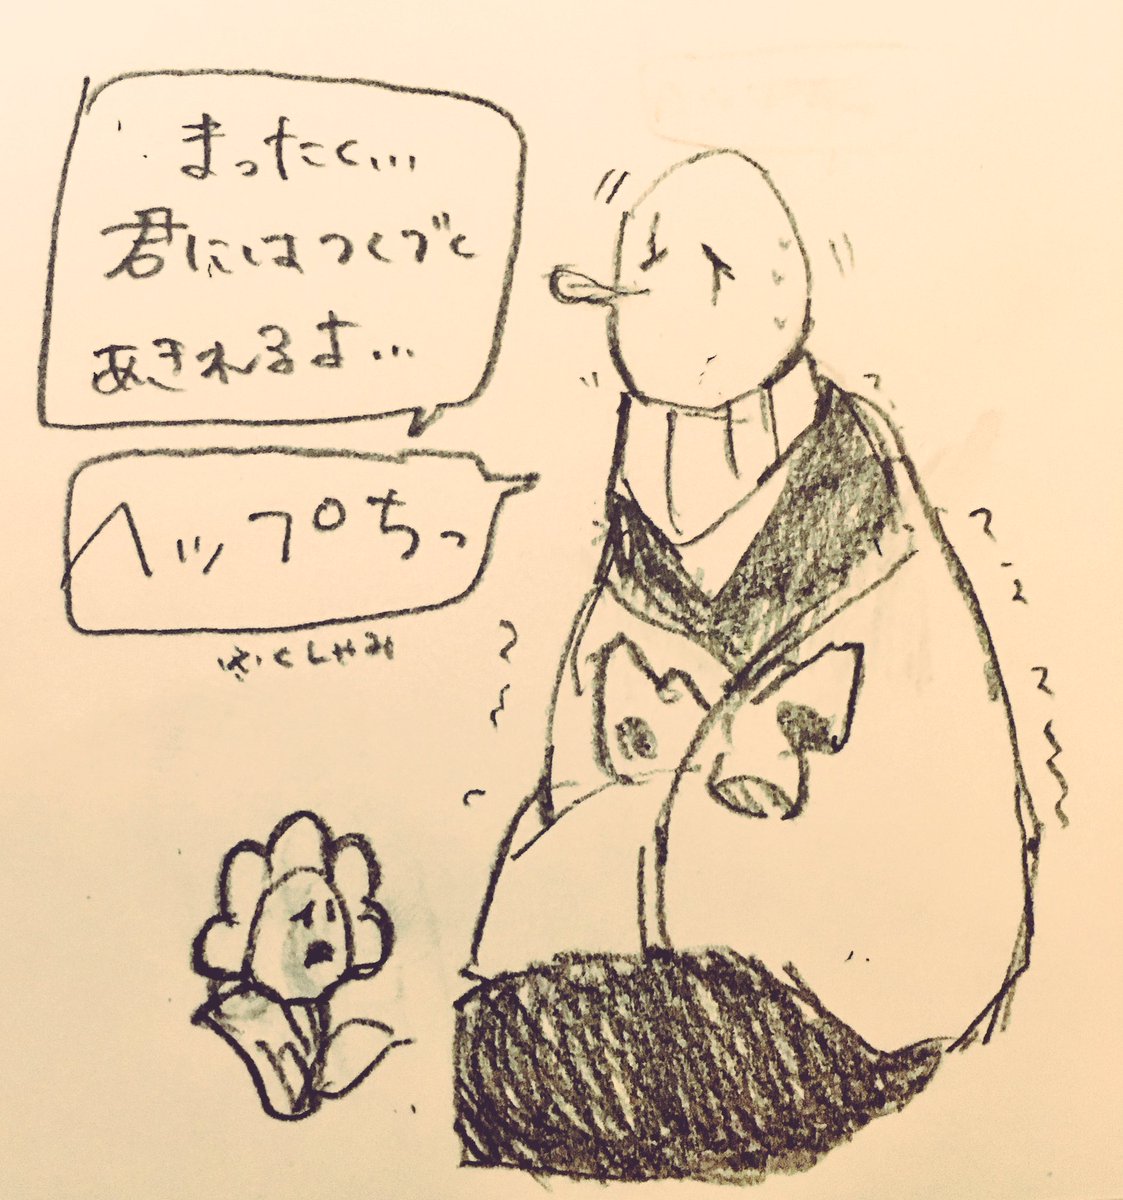 まったく...
君にはつくづく
あきれるよ...
ヘップちっ
はくしゃみ